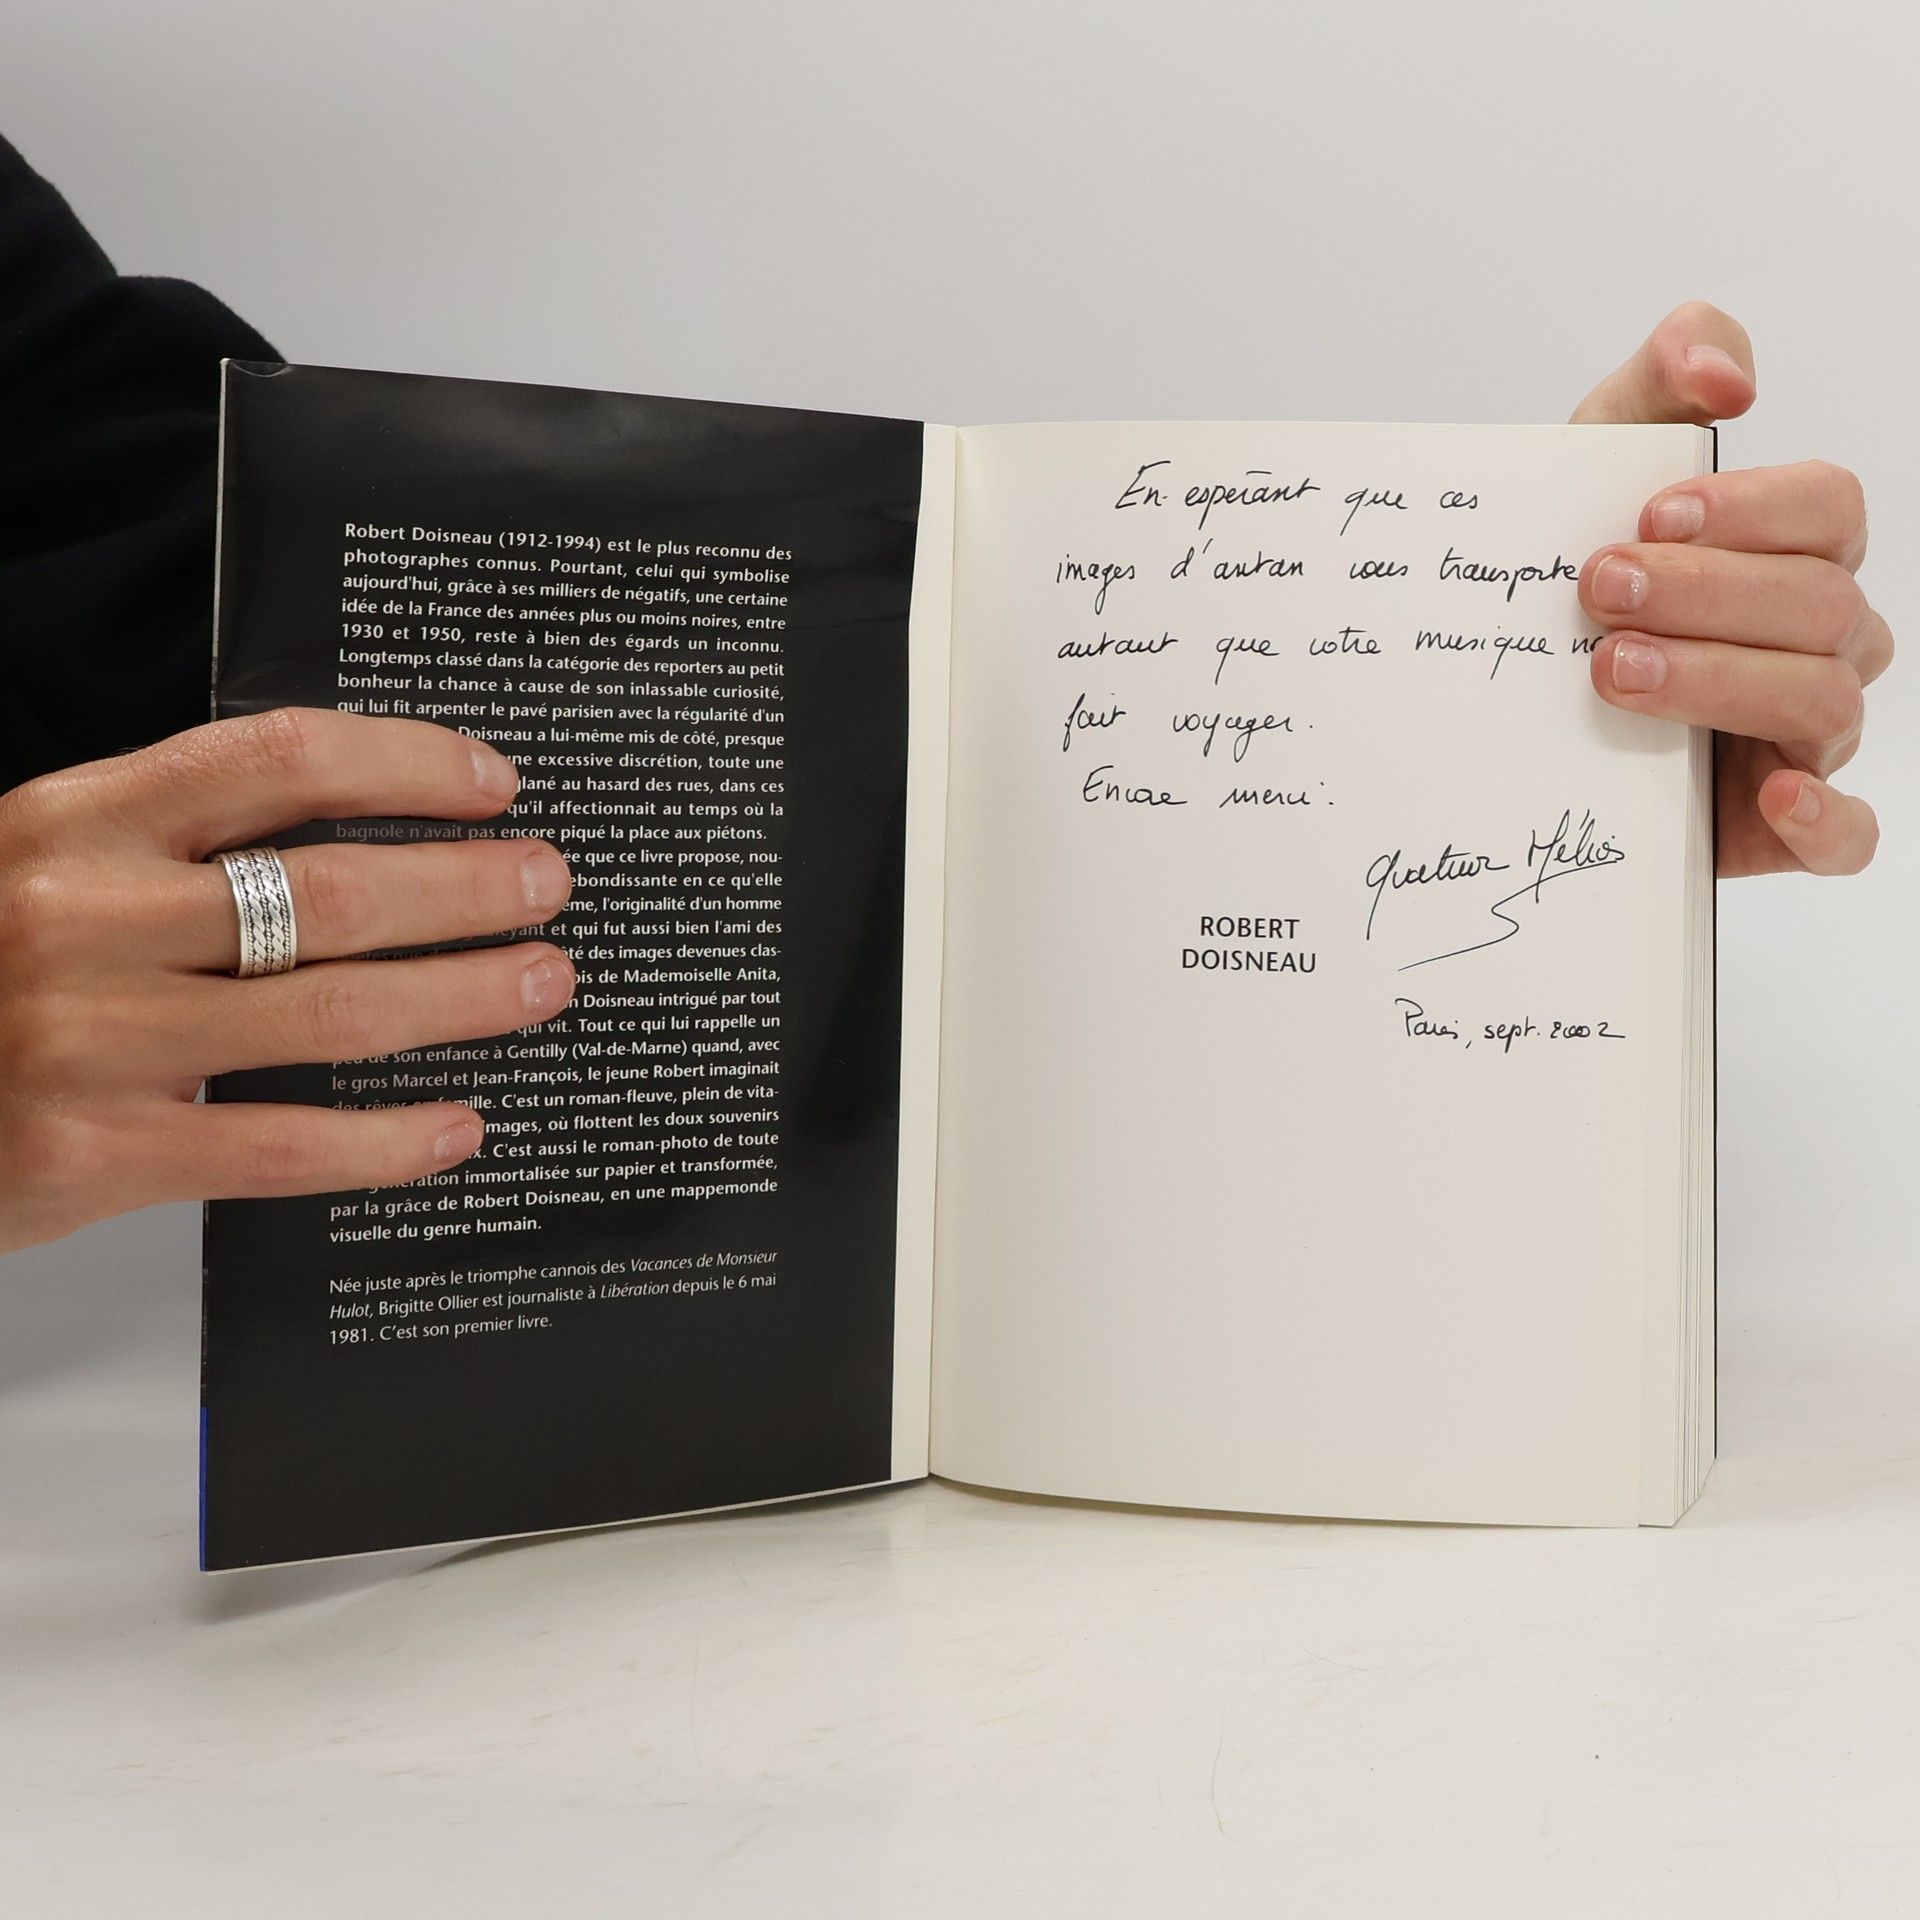 Robert Doisneau (1912-1994) est le plus reconnu des
photographes connus. Pourtant, celui qui symbolise
aujourd'hui, grâce à ses milliers de négatifs, une certaine
idée de la France des années plus ou moins noires, entre
1930 et 1950, reste à bien des égards un inconnu.
Longtemps classé dans la catégorie des reporters au petit
bonheur la chance à cause de son inlassable curiosité,
qui lui fit arpenter le pavé parisien avec la régularité d'un
Doisneau a lui-même mis de côté, presque
excessive discrétion, toute une
glané au hasard des rues, dans ces
qu'il affectionnait au temps où la
bagnole n'avait pas encore piqué la place aux piétons.
que ce livre propose, nou-
en ce qu'elle
l'originalité d'un homme
et qui fut aussi bien l'ami des
des images devenues clas-
de Mademoiselle Anita,
Doisneau intrigué par tout
qui vit. Tout ce qui lui rappelle un
de son enfance à Gentilly (Val-de-Marne) quand, avec
le gros Marcel et Jean-François, le jeune Robert imaginait
C'est un roman-fleuve, plein de vita-
images, où flottent les doux souvenirs
C'est aussi le roman-photo de toute
immortalisée sur papier et transformée,
par la grâce de Robert Doisneau, en une mappemonde
visuelle du genre humain.
Née juste après le triomphe cannois des Vacances de Monsieur
Hulot, Brigitte Ollier est journaliste à Libération depuis le 6 mai
1981. C'est son premier livre.
En espérant que ces
images d'antan vous transporte
autant que votre musique
fait voyager.
Encore merci.
Quatuor Hélios
ROBERT
DOISNEAU
Paris, sept. 2002